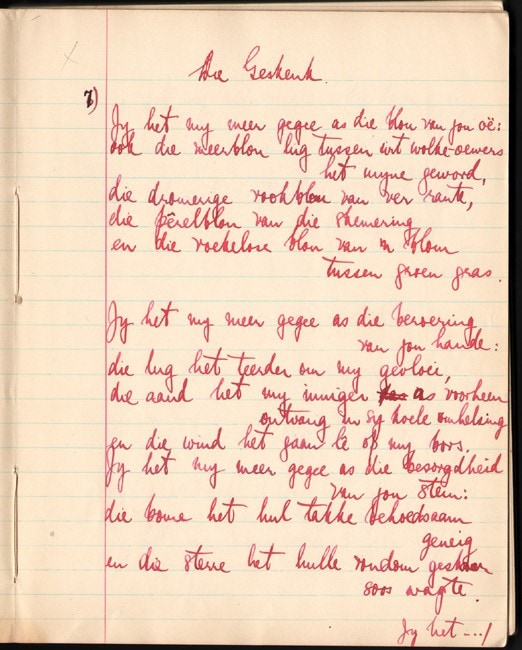 Die Geskenk.
7)
Jy het my meer gegee as die blou van jou oë:
ook die meerblou lug tussen wit wolke-oewers
het myne geword,
die dromerige rookblou van ver rante,
die pêrelblou van die skemering
en die roekelose blou van 'n blom
tussen groen gras.
Jy het my meer gegee as die beroering
van jou hande:
die lug het teerder om my gevloei,
die aand het my inniger as voorheen
ontvang in sy koele omhelsing
en die wind het gaan lê op my bors.
Jy het my meer gegee as die besorgdheid
van jou stem:
die bome het hul takke behoedsaam
geneig
en die sterre het hulle rondom geskaar
soos wagte.
Jy het .../